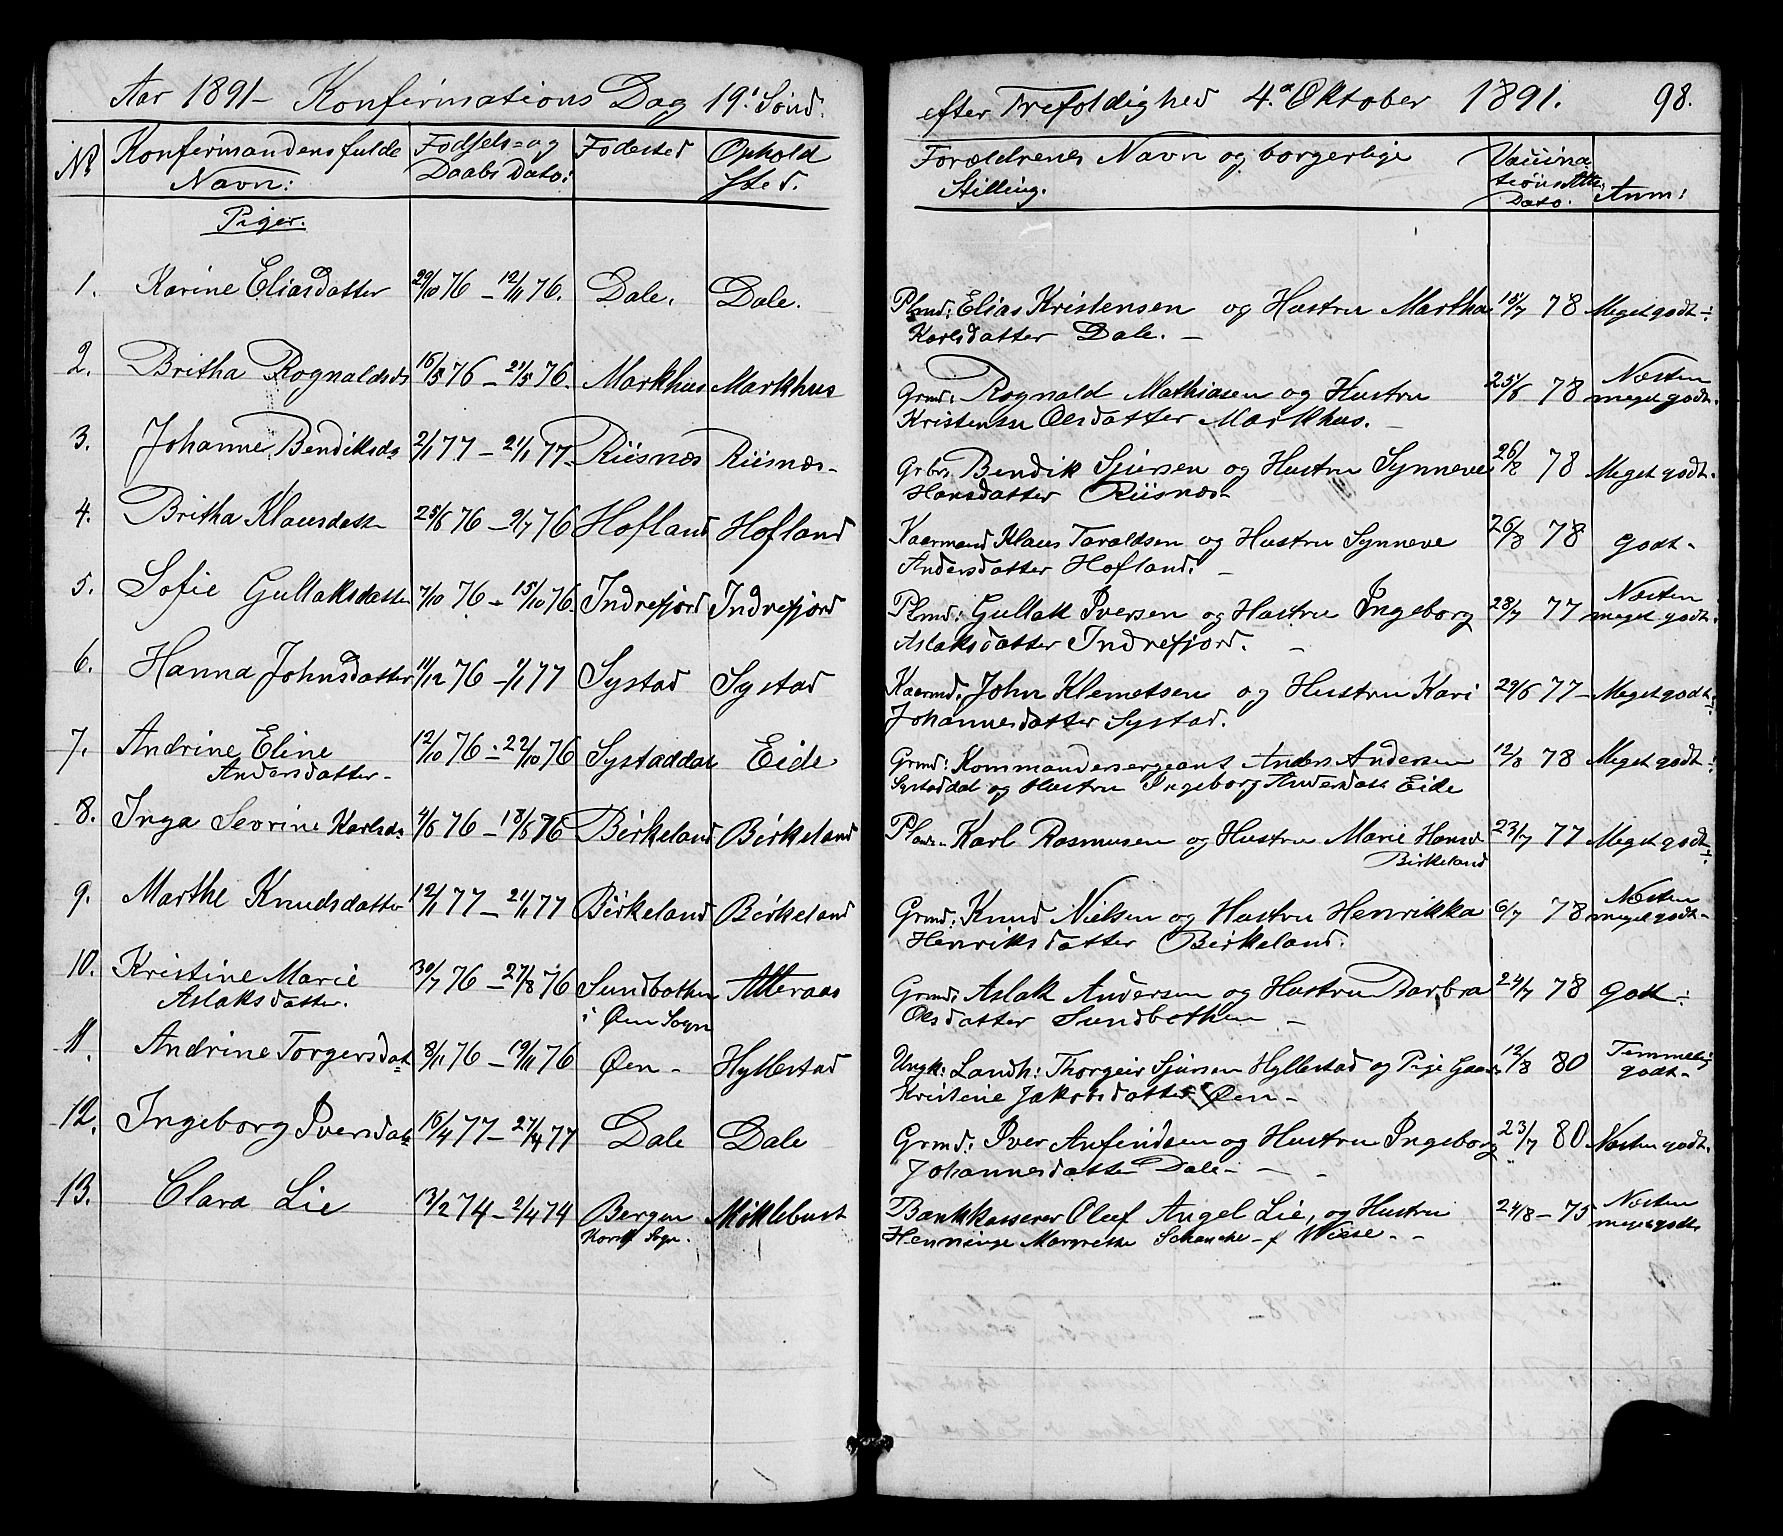 Aar 1891 - Konfirmations Dag 19. Sønd.
efter Trefoldighed 4. Oktober 1891. 98.
No Konfirmandens fulde Navn: Fødsels- og Daabs Dato: Fødested Opholdsted.
Forældrenes Navn og borgerlige Stilling. Vaccinations Atts. Dato. Anm:
Piger.
1. Karine Eliasdatter 29/10 76 - 12/11 76. Dale. Dale.
Plmd: Elias Kristensen og Hustru Martha 15/7 78 Meget godt
Karlsdatter Dale. -
2. Britha Rognaldsd 16/5 76 - 21/5 76. Markhus Markhus
Grmd: Rognald Mathiasen og Hustru 25/8 78 Næsten
Kristense Olsdatter Markhus. - meget godt.
3. Johanne Bendiksd 2/1 77 - 21/1 77 Riisnæs Riisnæs -
Grbr. Bendik Sjursen og Hustru Synneve 26/8 78 Meget godt.
Hansdatter Riisnæs
4. Britha Klausdatt 25/6 76 - 2/7 76 Hofland Hofland
Kaarmand Klaus Taraldsen og Hustru Synneve 26/8 78 godt -
Andersdatter Hofland. -
5. Sofie Gullaksdatter 7/10 76 - 15/10 76 Indrefjord Indrefjord
Plmd: Gullak Iversen og Hustru Ingeborg 28/7 77 Næsten
Aslaksdatter Indrefjord. - meget godt.
6. Hanna Johnsdatter 11/12 76 - 1/1 77 Systad Systad
Kaarmd. John Klemetsen og Hustru Kari 29/6 77 - Meget godt
Johannesdatter Systad.
7. Andrine Eline 12/10 76 - 22/10 76 Systaddal Eide
Andersdatter -
Grmd: Kommandersergeant Anders Andersen 12/8 78 Meget godt
Systaddal og Hustru Ingeborg Andersdatt Eide
8. Inga Sevrine Karlsd 4/6 76 - 18/6 76 Birkeland Birkeland
Karl Rasmusen og Hustru Marie Hansd 23/7 77 Meget godt
Birkeland
9. Marthe Knudsdatter 12/1 77 - 21/1 77 Birkeland Birkeland
Grmd: Knud Nielsen og Hustru Henrikka 6/7 78 Næsten
Henriksdatter Birkeland. meget godt -
10. Kristine Marie 30/7 76 - 27/8 76 Sundbothen Atteraas
Aslaksdatter. i Øen Sogn
Grmd. Aslak Andersen og Hustru Barbra 24/7 78 godt
Olsdatter Sundbothen -
11. Andrine Torgersdat 8/11 76 - 19/11 76 Øen - Hyllestad
Ungk: Landh: Thorgeir Sjursen Hyllestad og Pige 12/8 80 Temmelig
Kristine Jakobsdatter Øen - godt -
12. Ingeborg Iversdat 16/4 77 - 27/4 77 Dale Dale
Grmd: Iver Anfindsen og Hustru Ingeborg 23/7 80 Næsten godt.
Johannesdatter Dale -
13. Clara Lie 13/2 74 - 2/4 74 Bergen Møklebust
Korsk. Sogn.
Bankkasserer Oluf Angel Lie, og Hustru 24/8 - 75 Næsten
Henninge Margrethe Schanche f Wiese. - meget godt